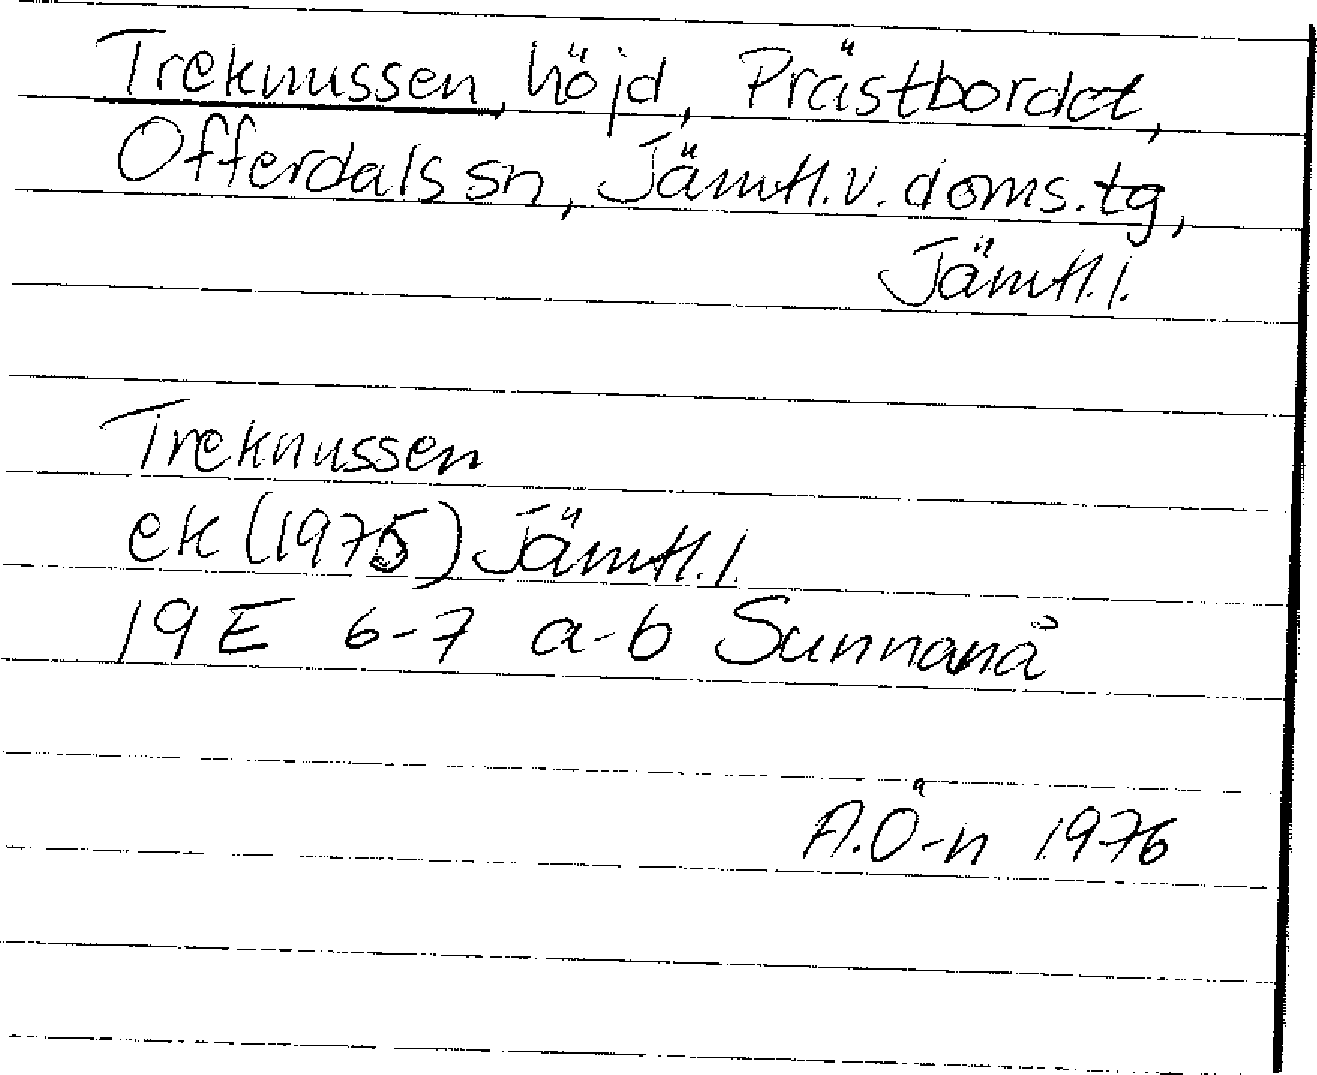 Treknussen, höjd, Prästbordet,
Offerdals sn, Jämtl.v.doms.tg,
Jämtl.l.
Treknussen
ek (1975) Jämtl.l.
19 E 6-7 a-b Sunnanå
A.Ö-n 1976